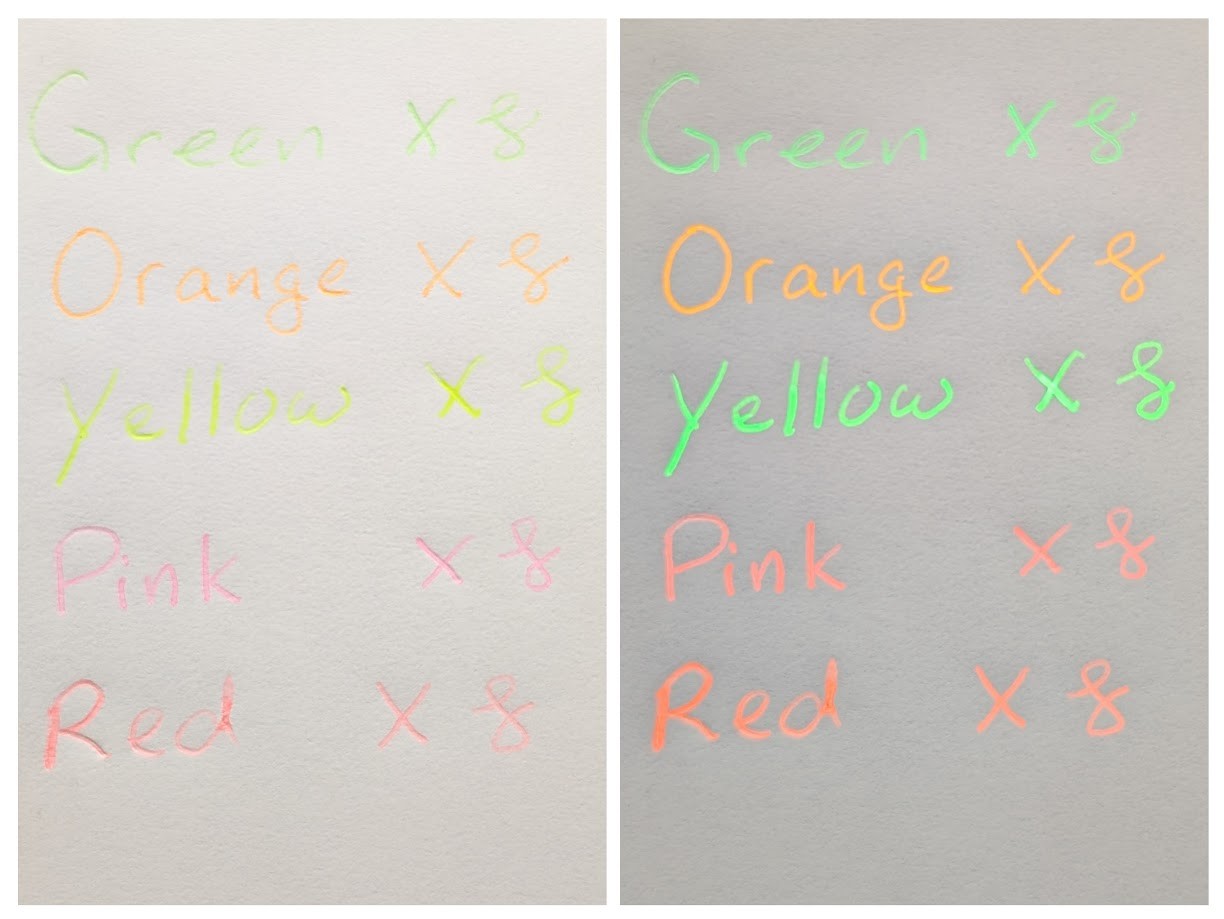 Green X &
Orange X &
Yellow X &
Pink X &
Red X &
Green X &
Orange X &
Yellow X &
Pink X &
Red X &